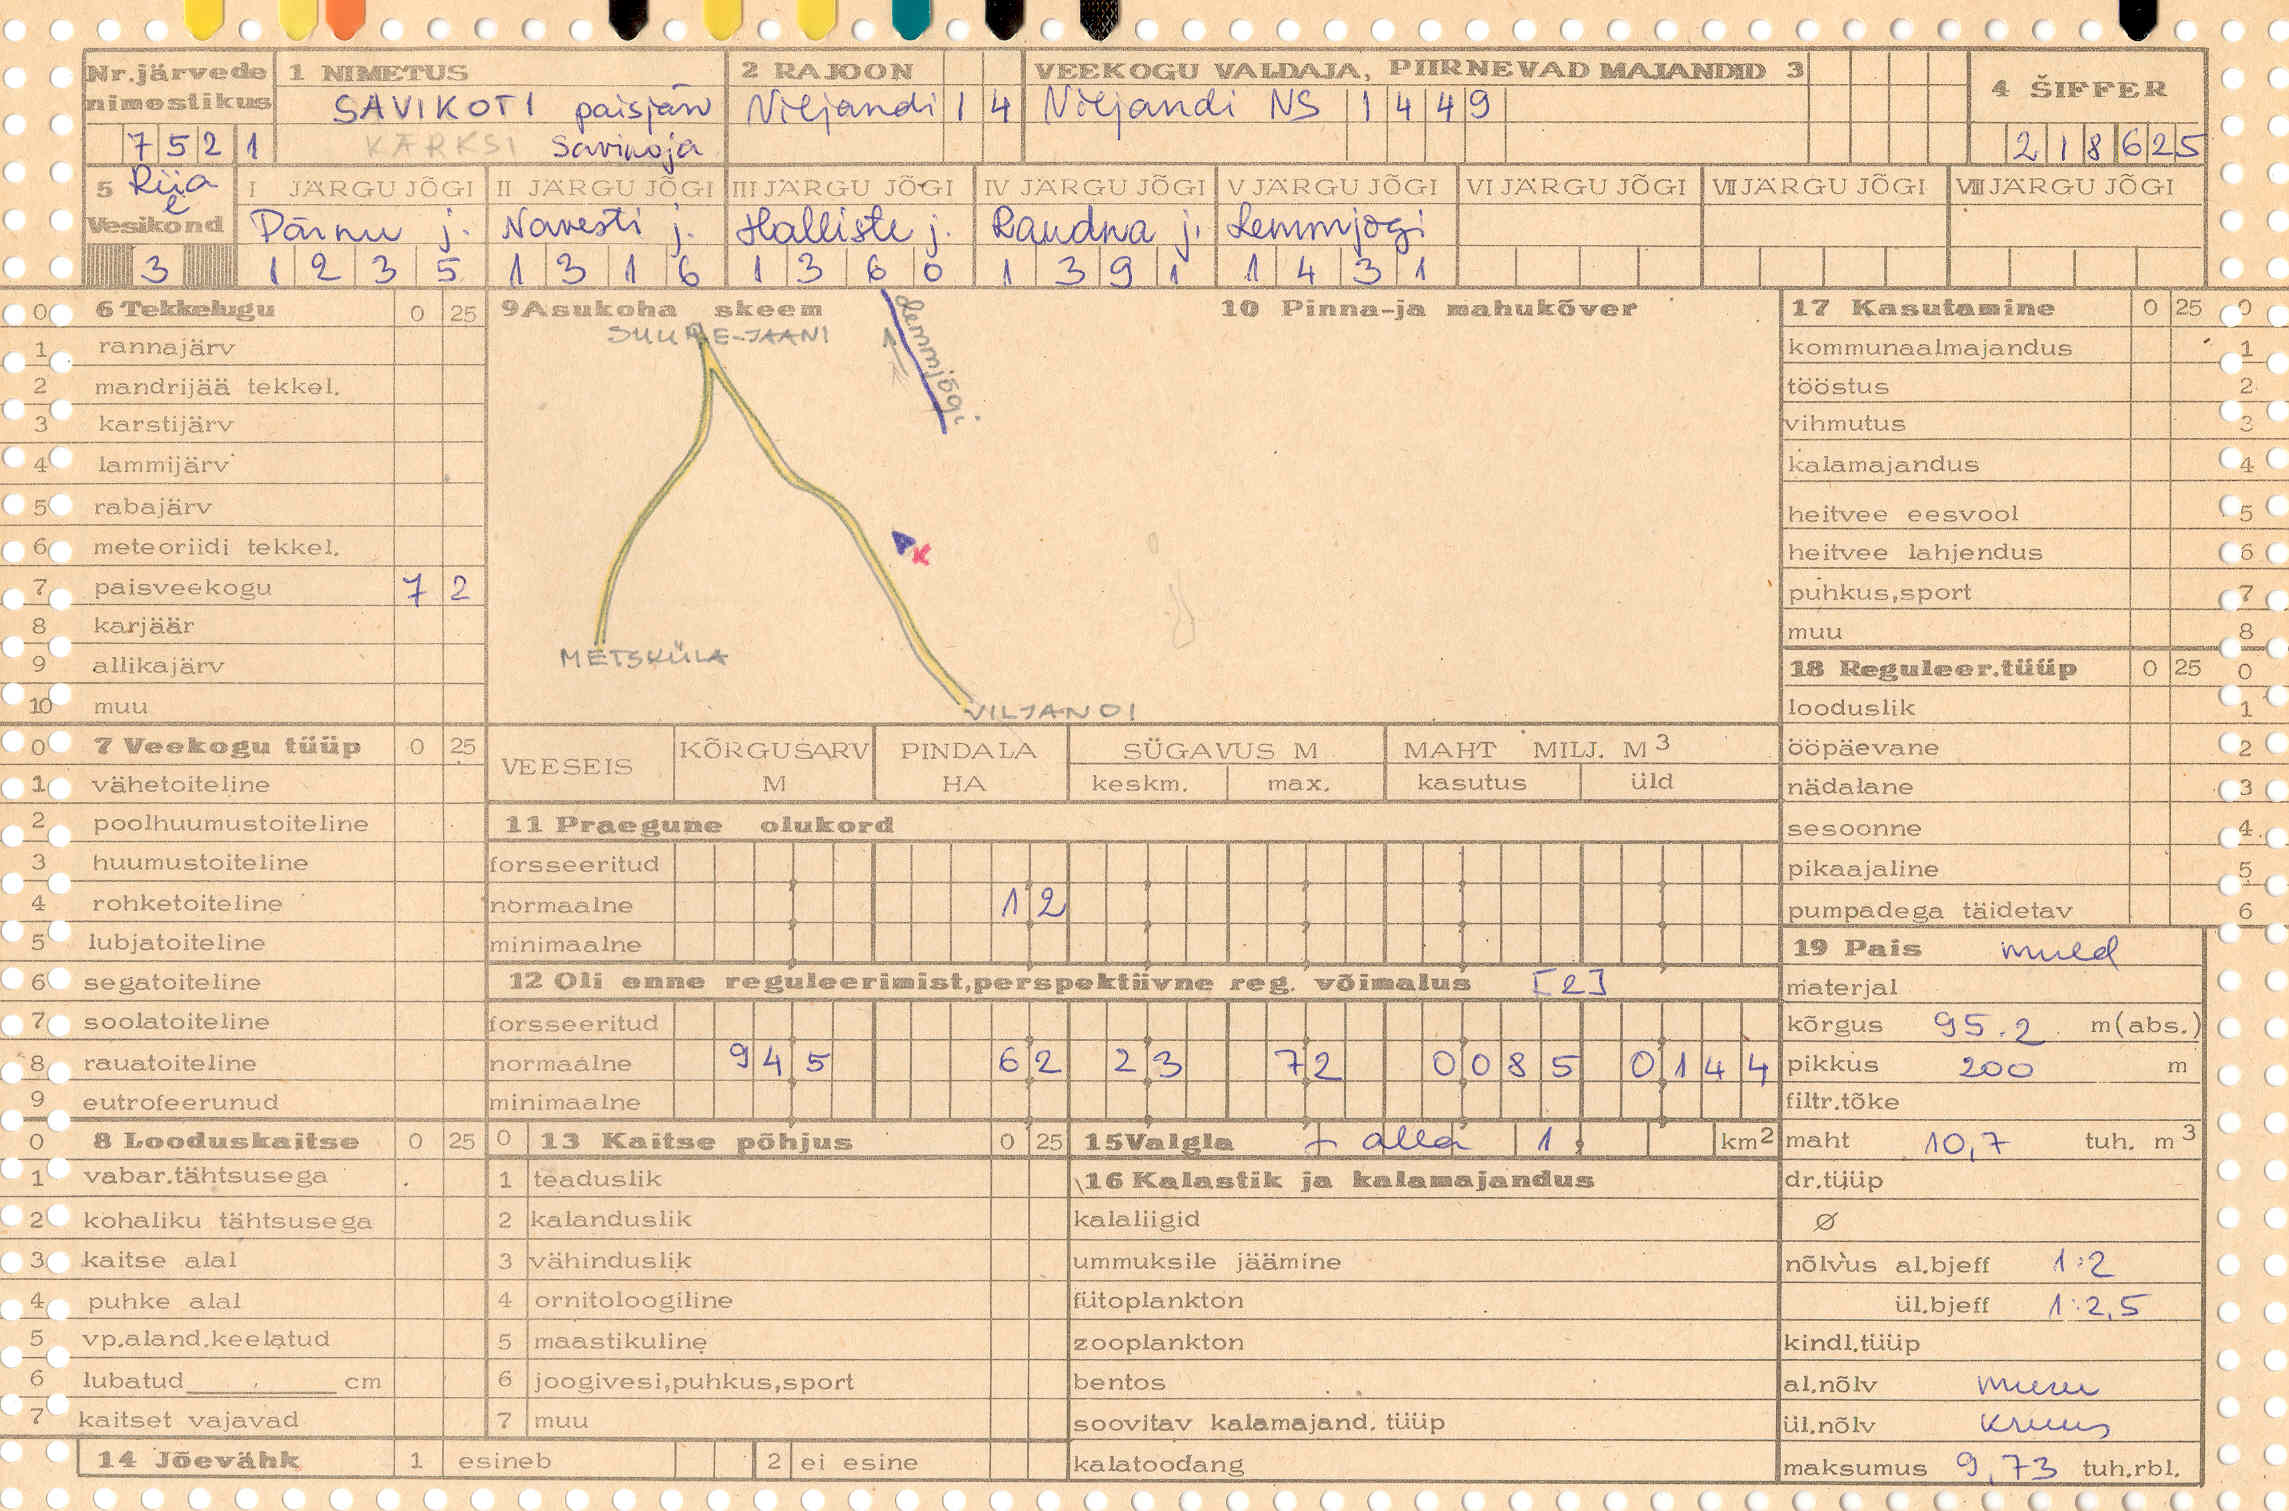 Nr.järvede nimestikus
7521
1 NIMETUS
SAVIKOTI paisjärv
KÄRKSI Savikoja
2 RAJOON
Viljandi 14
VEEKOGU VALDAJA, PIIRNEVAD MAJANDID 3
Viljandi NS 1449
4 ŠIFFER
218625
5 Riia
Vesikond
3
I JÄRGU JÕGI
Pärnu j.
1235
II JÄRGU JÕGI
Navesti j.
1316
III JÄRGU JÕGI
Halliste j.
1360
IV JÄRGU JÕGI
Raudna j.
1391
V JÄRGU JÕGI
Lemmjõgi
1431
VI JÄRGU JÕGI
VII JÄRGU JÕGI
VIII JÄRGU JÕGI
0 6 Tekkelugu 0 25
1 rannajärv
2 mandrijää tekkel.
3 karstijärv
4 lammijärv
5 rabajärv
6 meteoriidi tekkel.
7 paisveekogu 7 2
8 karjäär
9 allikajärv
10 muu
9 Asukoha skeem
SUURE-JAANI
Lemmjõgi
K
METSKÜLA
VILJANDI
10 Pinna-ja mahukõver
17 Kasutamine 0 25 0
kommunaalmajandus 1
tööstus 2
vihmutus 3
kalamajandus 4
heitvee eesvool 5
heitvee lahjendus 6
puhkus,sport 7
muu 8
18 Reguleer.tüüp 0 25 0
looduslik 1
ööpäevane 2
nädalane 3
sesoonne 4
pikaajaline 5
pumpadega täidetav 6
0 7 Veekogu tüüp 0 25
1 vähetoiteline
2 poolhuumustoiteline
3 huumustoiteline
4 rohketoiteline
5 lubjatoiteline
6 segatoiteline
7 soolatoiteline
8 rauatoiteline
9 eutrofeerunud
VEESEIS
KÕRGUSARV M
PINDALA HA
SÜGAVUS M
keskm. max.
MAHT MILJ. M3
kasutus üld
11 Praegune olukord
forsseeritud
normaalne 1 2
minimaalne
12 Oli enne reguleerimist,perspektiivne reg. võimalus [2]
forsseeritud
normaalne 945 62 23 72 0085 0144
minimaalne
19 Pais muld
materjal
kõrgus 95.2 m(abs.)
pikkus 200 m
filtr.tõke
maht 10,7 tuh. m3
dr.tüüp
Ø
nõlvus al.bjeff 1:2
ül.bjeff 1:2,5
kindl.tüüp
al.nõlv muru
ül.nõlv kruus
maksumus 9,73 tuh.rbl.
0 8 Looduskaitse 0 25
1 vabar.tähtsusega
2 kohaliku tähtsusega
3 kaitse alal
4 puhke alal
5 vp.aland.keelatud
6 lubatud cm
7 kaitset vajavad
0 13 Kaitse põhjus 0 25
1 teaduslik
2 kalanduslik
3 vähinduslik
4 ornitoloogiline
5 maastikuline
6 joogivesi,puhkus,sport
7 muu
15 Valgla alla 1 km2
16 Kalastik ja kalamajandus
kalaliigid
ummuksile jäämine
fütoplankton
zooplankton
bentos
soovitav kalamajand. tüüp
kalatoodang
14 Jõevähk 1 esineb 2 ei esine